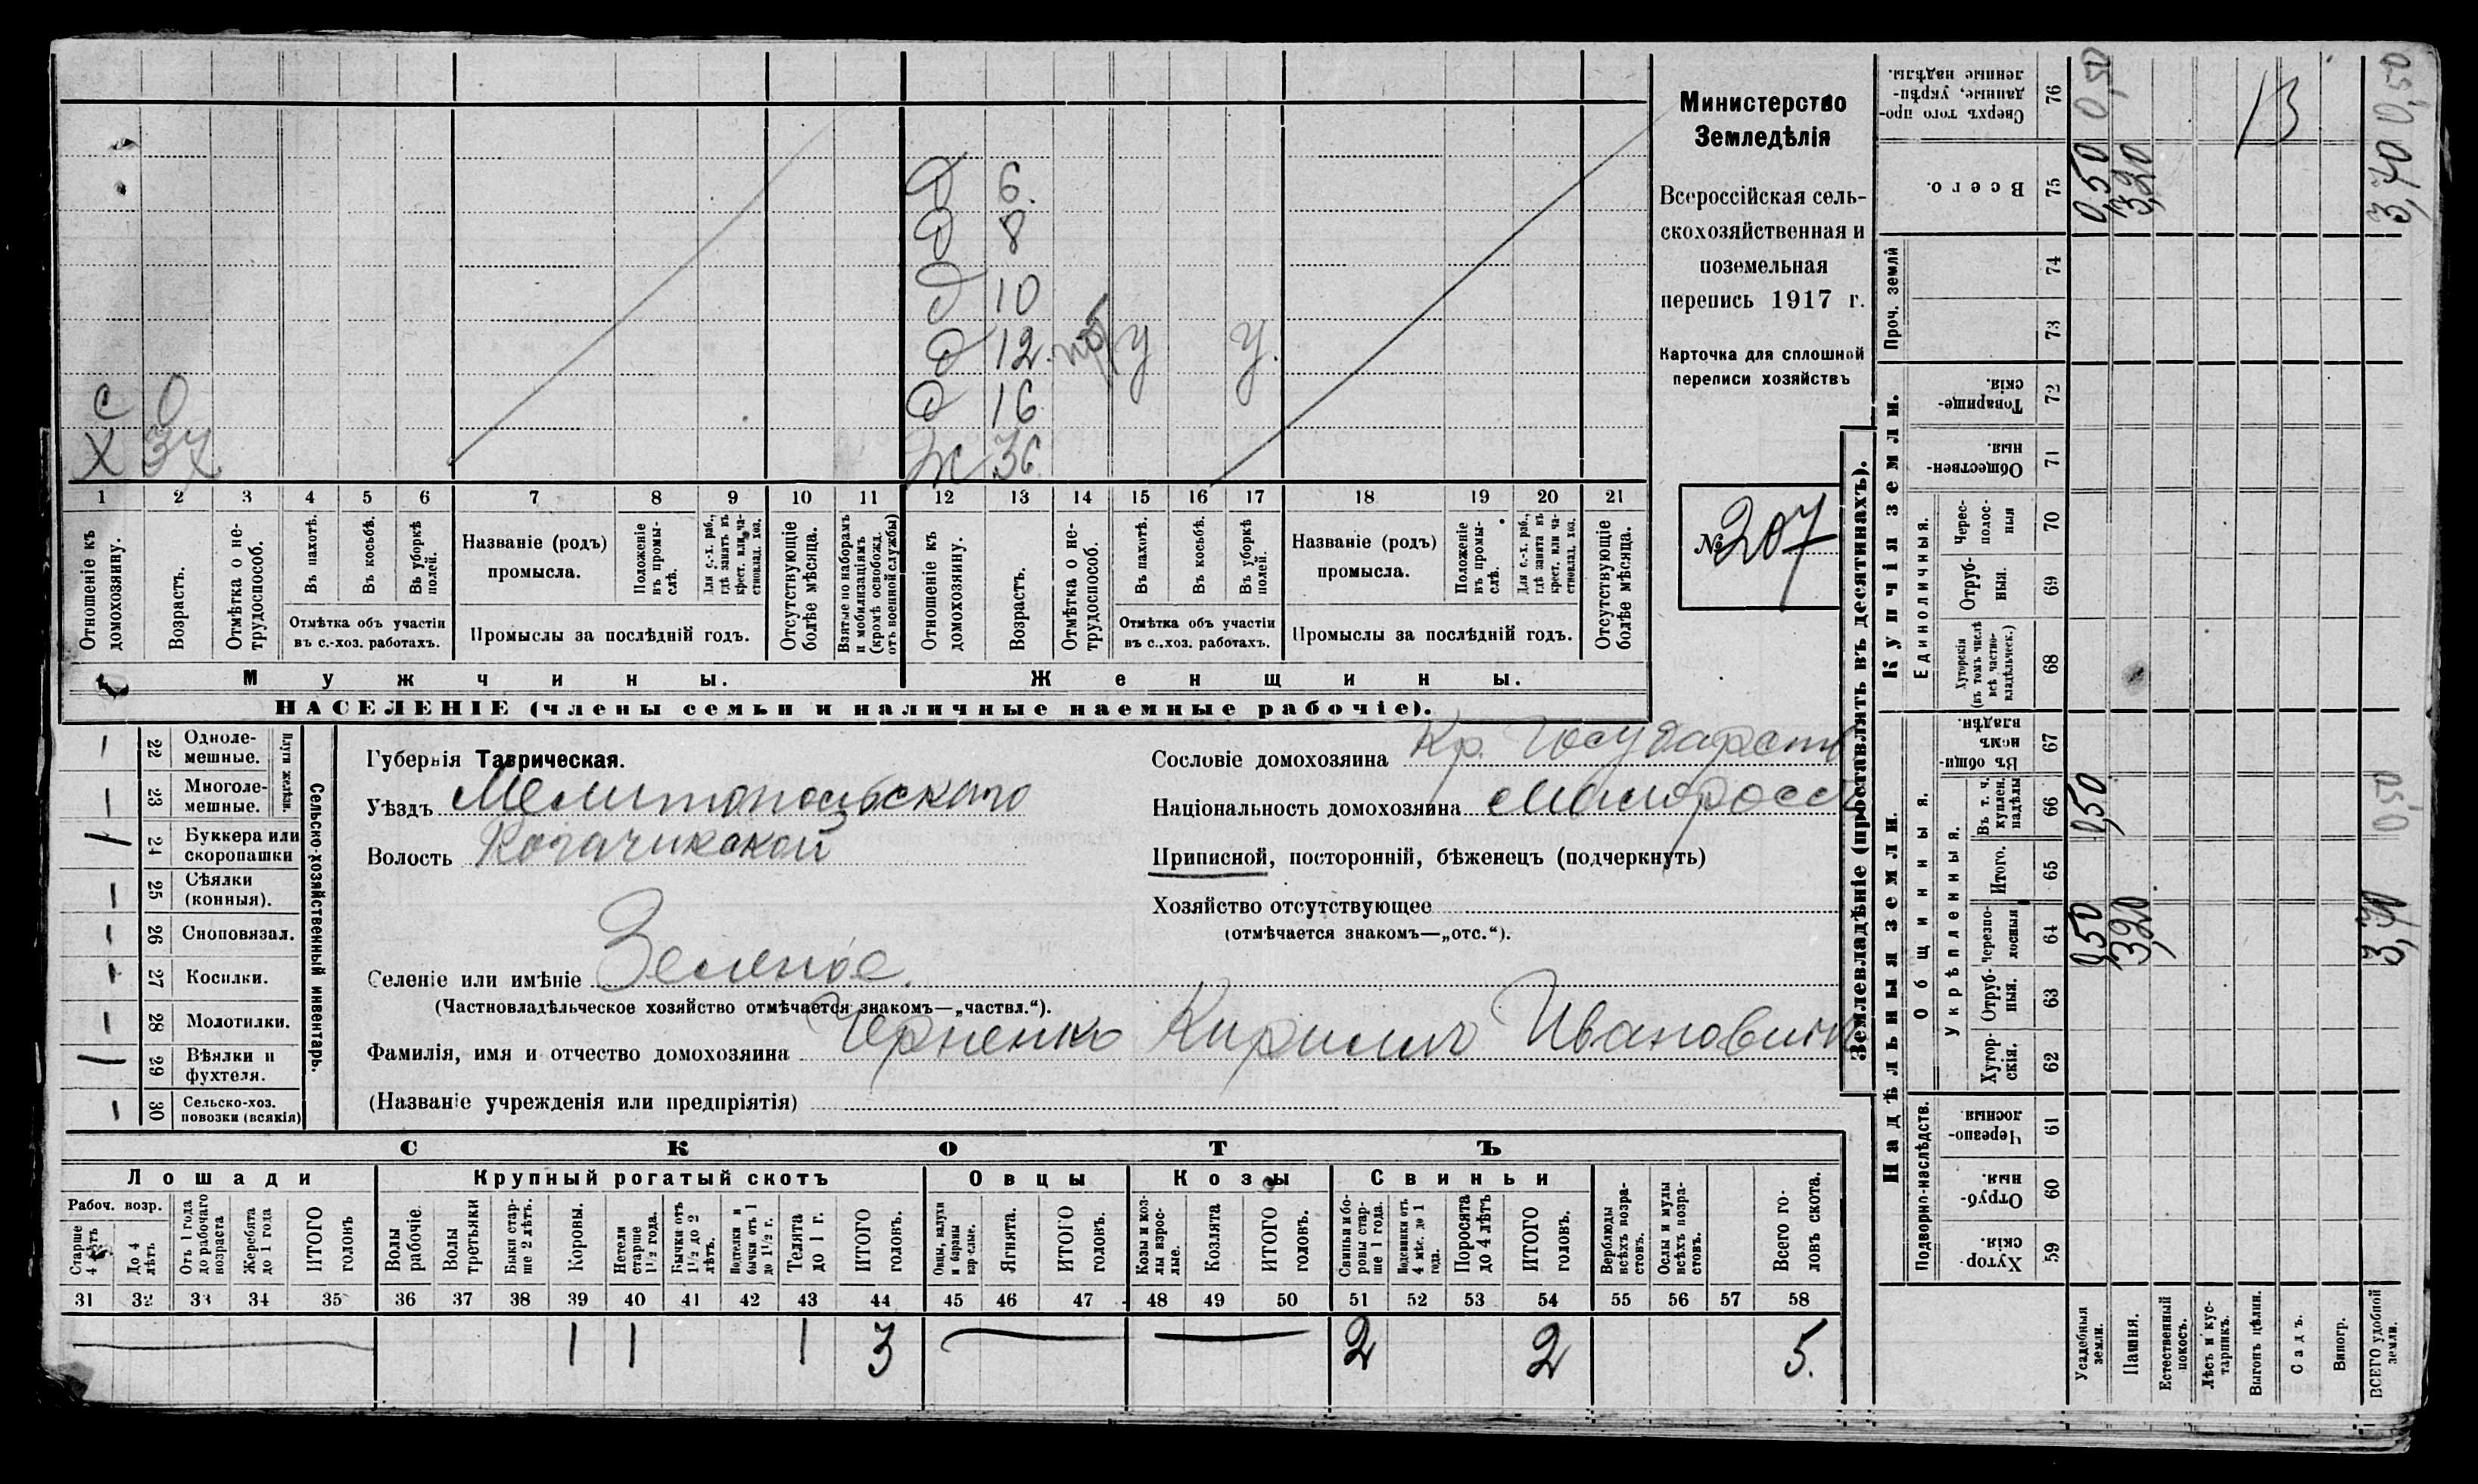 Министерство
Земледѣлія
Всероссійская сель-
скохозяйственная и
поземельная
перепись 1917 г.
Карточка для сплошной
переписи хозяйствъ
№ 207
д 6.
д 8
д 10
д 12. у у.
с 0 д 16
х 37 ж 36
1 2 3 4 5 6 7 8 9 10 11 12 13 14 15 16 17 18 19 20 21
Отношеніе къ домохозяину.
Возрастъ.
Отмѣтка о не-трудоспособ.
Въ пахотѣ.
Въ косьбѣ.
Въ уборкѣ полей.
Отмѣтка объ участіи
въ с.-хоз. работахъ.
Названіе (родъ)
промысла.
Положеніе въ промы-слѣ.
Для с.-х. раб., гдѣ занятъ въ крест. или ча-стновлад. хоз.
Промыслы за послѣдній годъ.
Отсутствующіе болѣе мѣсяца.
Взятые по наборамъ и мобилизаціямъ (кромѣ освобожд. отъ военной службы)
Отношеніе къ домохозяину.
Возрастъ.
Отмѣтка о не-трудоспособ.
Въ пахотѣ.
Въ косьбѣ.
Въ уборкѣ полей.
Отмѣтка объ участіи
въ с.-хоз. работахъ.
Названіе (родъ)
промысла.
Положеніе въ промы-слѣ.
Для с.-х. раб., гдѣ занята въ крест. или ча-стновлад. хоз.
Промыслы за послѣдній годъ.
Отсутствующіе болѣе мѣсяца.
Мужчины. Женщины.
НАСЕЛЕНІЕ (члены семьи и наличные наемные рабочіе).
Сельско-хозяйственный инвентарь.
Плуги желѣзн.
22 Одноле-мешные.
23 Многоле-мешные.
24 Буккера или скоропашки
25 Сѣялки (конныя).
26 Сноповязал.
27 Косилки.
28 Молотилки.
29 Вѣялки и фухтеля.
30 Сельско-хоз. повозки (всякія)
Губернія Таврическая.
Уѣздъ Мелитопольскаго
Волость
Селеніе или имѣніе Зеленое.
(Частновладѣльческое хозяйство отмѣчается знакомъ—„частвл.“).
Фамилія, имя и отчество домохозяина Черненко Кирилл Иванович
(Названіе учрежденія или предпріятія)
Сословіе домохозяина Кр. Государств
Національность домохозяина Малоросс
Приписной, посторонній, бѣженецъ (подчеркнуть)
Хозяйство отсутствующее
(отмѣчается знакомъ—„отс.“).
СКОТЪ
Лошади Крупный рогатый скотъ Овцы Козы Свиньи
Рабоч. возр.
Старше 4 лѣтъ
До 4 лѣтъ
Отъ 1 года до рабочаго возраста
Жеребята до 1 года
ИТОГО головъ
Волы рабочіе.
Волы третьяки
Быки стар-ше 2 лѣтъ.
Коровы.
Нетели старше 1½ года.
Бычки отъ 1½ до 2 лѣтъ.
Подтелки и бычки отъ 1 до 1½ г.
Телята до 1 г.
ИТОГО головъ.
Овцы, валухи и бараны взрослые.
Ягнята.
ИТОГО головъ.
Козы и коз-лы взрос-лые.
Козлята
ИТОГО головъ.
Свиньи и бо-ровы стар-ше 1 года.
Подсвинки отъ 4 мѣс. до 1 года.
Поросята до 4 лѣтъ
ИТОГО головъ.
Верблюды всѣхъ возра-стовъ.
Ослы и мулы всѣхъ возра-стовъ.
Всего го-ловъ скота.
31 32 33 34 35 36 37 38 39 40 41 42 43 44 45 46 47 48 49 50 51 52 53 54 55 56 57 58
1 1 1 3 2 2 5.
Землевладѣніе (проставлять въ десятинахъ).
Надѣльныя земли. Купчія земли. Проч. земли
Подворно-наслѣдств.
Общинныя.
Укрѣпленныя.
Единоличныя.
Хутор-скія. 59
Отруб-ныя. 60
Черезпо-лосныя 61
Хутор-скія. 62
Отруб-ныя. 63
черезпо-лосныя 64
Итого. 65
Въ т. ч. куплен. надѣлы 66
Въ общи-номъ владѣн. 67
Хуторскія (въ томъ числѣ всѣ частно-владѣльческ.) 68
Отруб-ныя. 69
Черес-полос-ныя 70
Обществен-ныя. 71
Товарище-скія. 72
73
74
Всего. 75
Сверхъ того про-данные, укрѣп-ленные надѣлы. 76
Усадебныя земли. 0,50 0,50 0,50 0,50
Пашня. 3,20 3,20
Естественный покосъ.
Лѣсъ и кус-тарникъ.
Выгонъ цѣлин.
Садъ.
Виногр.
ВСЕГО удобной земли. 3,70 0,50 3,70 0,50